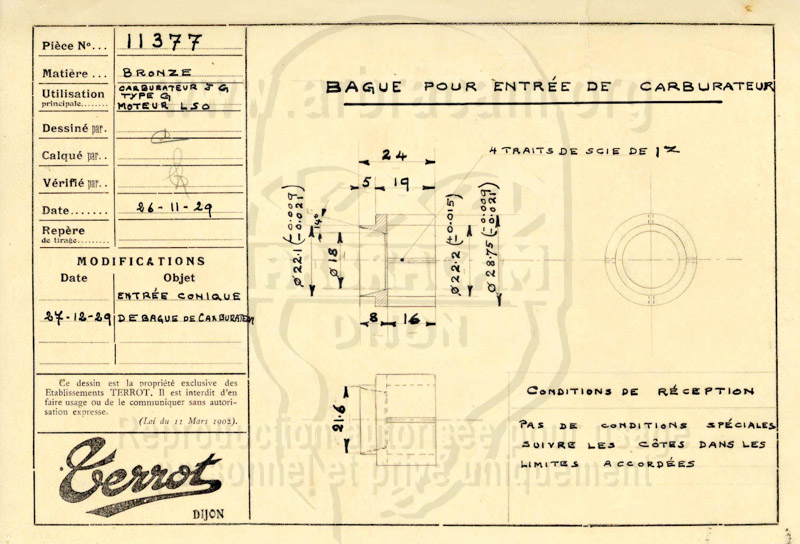 Pièce Nº... 11377
Matière ... BRONZE
Utilisation principale........ CARBURATEUR J G
TYPE G
MOTEUR LSO
Dessiné par.
Calqué par..
Vérifié par..
Date....... 26-11-29
Repère
de tirage........
MODIFICATIONS
Date Objet
ENTRÉE CONIQUE
27-12-29 DE BAGUE DE CARBURATEUR
Ce dessin est la propriété exclusive des
Etablissements TERROT. Il est interdit d'en
faire usage ou de le communiquer sans autori-
sation expresse.
(Loi du 11 Mars 1902).
Terrot
DIJON
BAGUE POUR ENTRÉE DE CARBURATEUR
4 TRAITS DE SCIE DE 1
24
5 19
Ø 22.1 (-0.009 -0.021)
14°
Ø 18
Ø 22.2 (+0.015)
Ø 28.75 (-0.009 -0.021)
8 16
21.6
CONDITIONS DE RÉCEPTION
PAS DE CONDITIONS SPÉCIALES
SUIVRE LES CÔTES DANS LES
LIMITES ACCORDÉES
www.arbracam.org
ARBRACAM
DIJON
Reproduction autorisée pour usage
personnel et privé uniquement